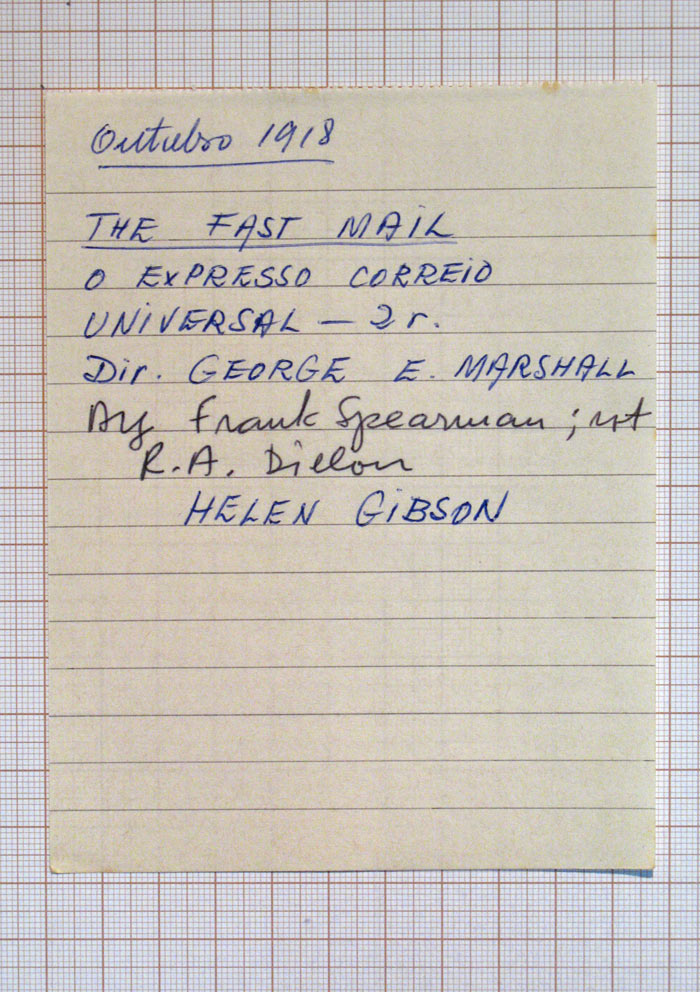 Outubro 1918
THE FAST MAIL
O EXPRESSO CORREIO
UNIVERSAL — 2 r.
Dir. GEORGE E. MARSHALL
Ay Frank Spearman ;
R.A. Dillon
HELEN GIBSON